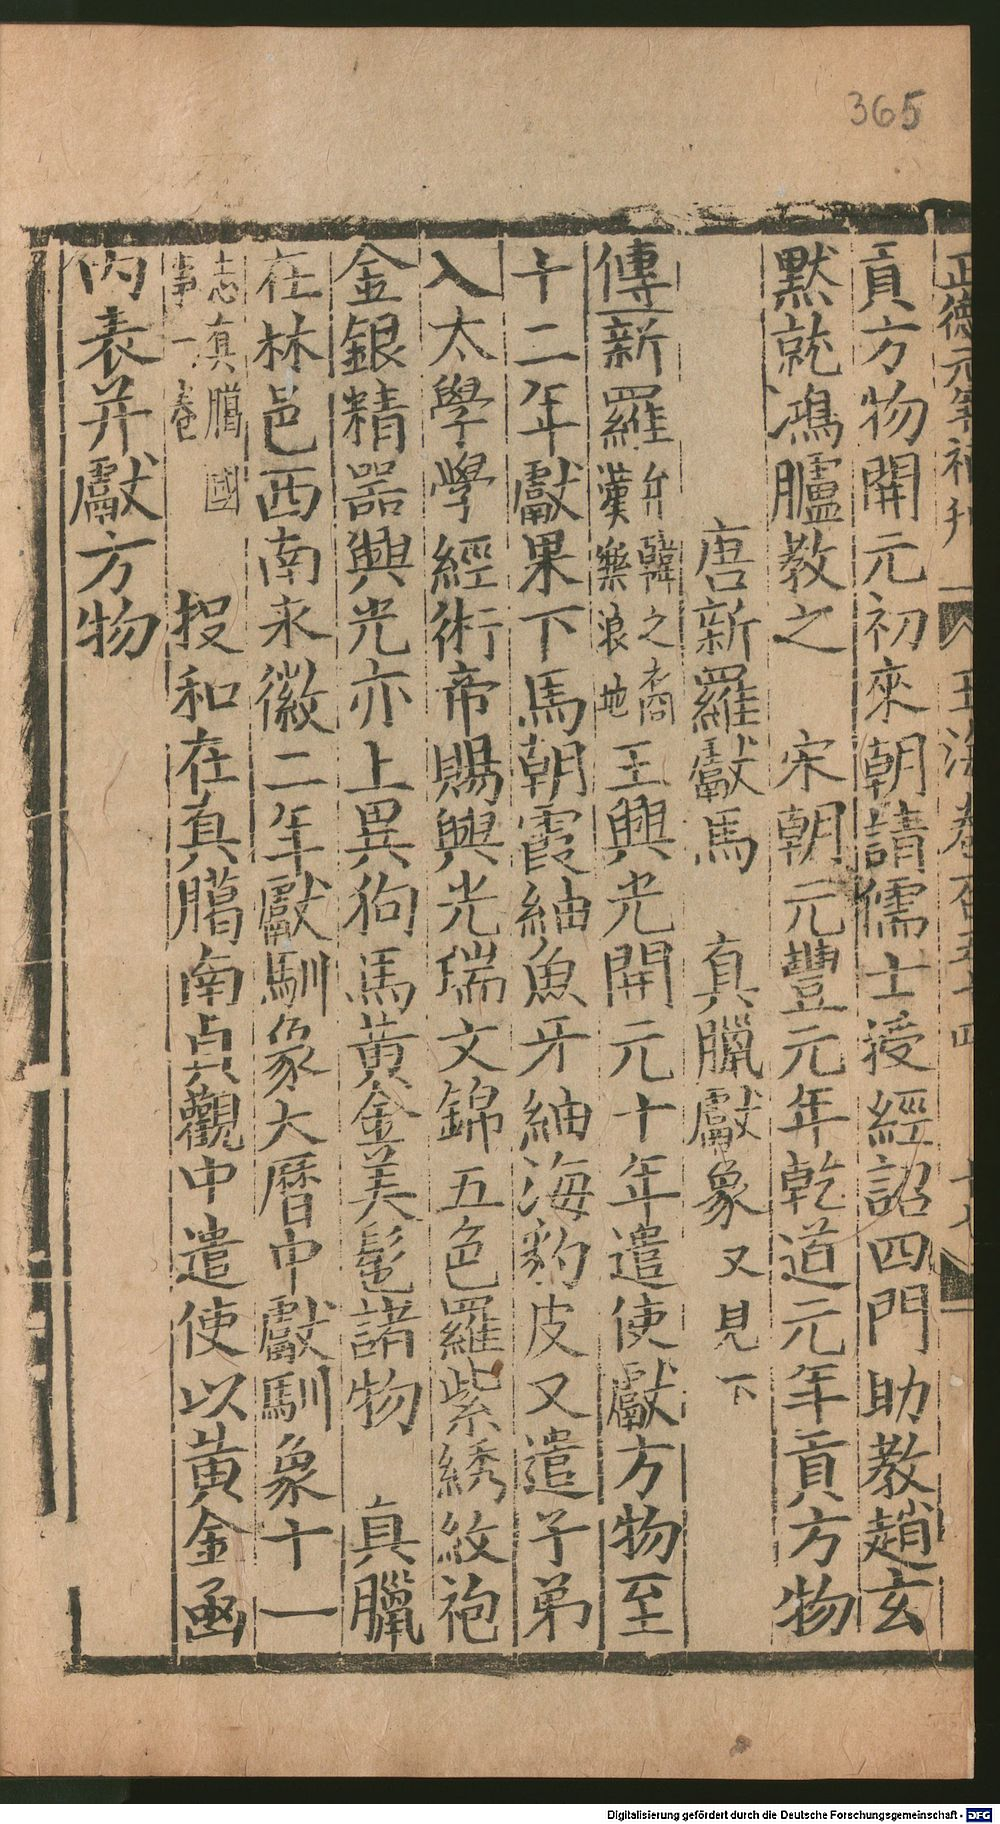 365
正德元年補刋 玉海卷百五十四
貢方物開元初來朝請儒士授經詔四門助教趙玄
黙就鴻臚教之　宋朝元豐元年乾道元年貢方物
唐新羅獻馬　真臘獻象又見下
傳新羅弁韓之裔漢樂浪地王興光開元十年遣使獻方物至
十二年獻果下馬朝霞紬魚牙紬海豹皮又遣子弟
入太學學經術帝賜興光瑞文錦五色羅紫綉紋袍
金銀精器興光亦上異狗馬黄金美髢諸物　真臘
在林邑西南永徽二年獻馴象大曆中獻馴象十一
志真臈國事一卷　投和在真臈南貞觀中遣使以黄金函
内表并獻方物
Digitalisierung gefördert durch die Deutsche Forschungsgemeinschaft - DFG